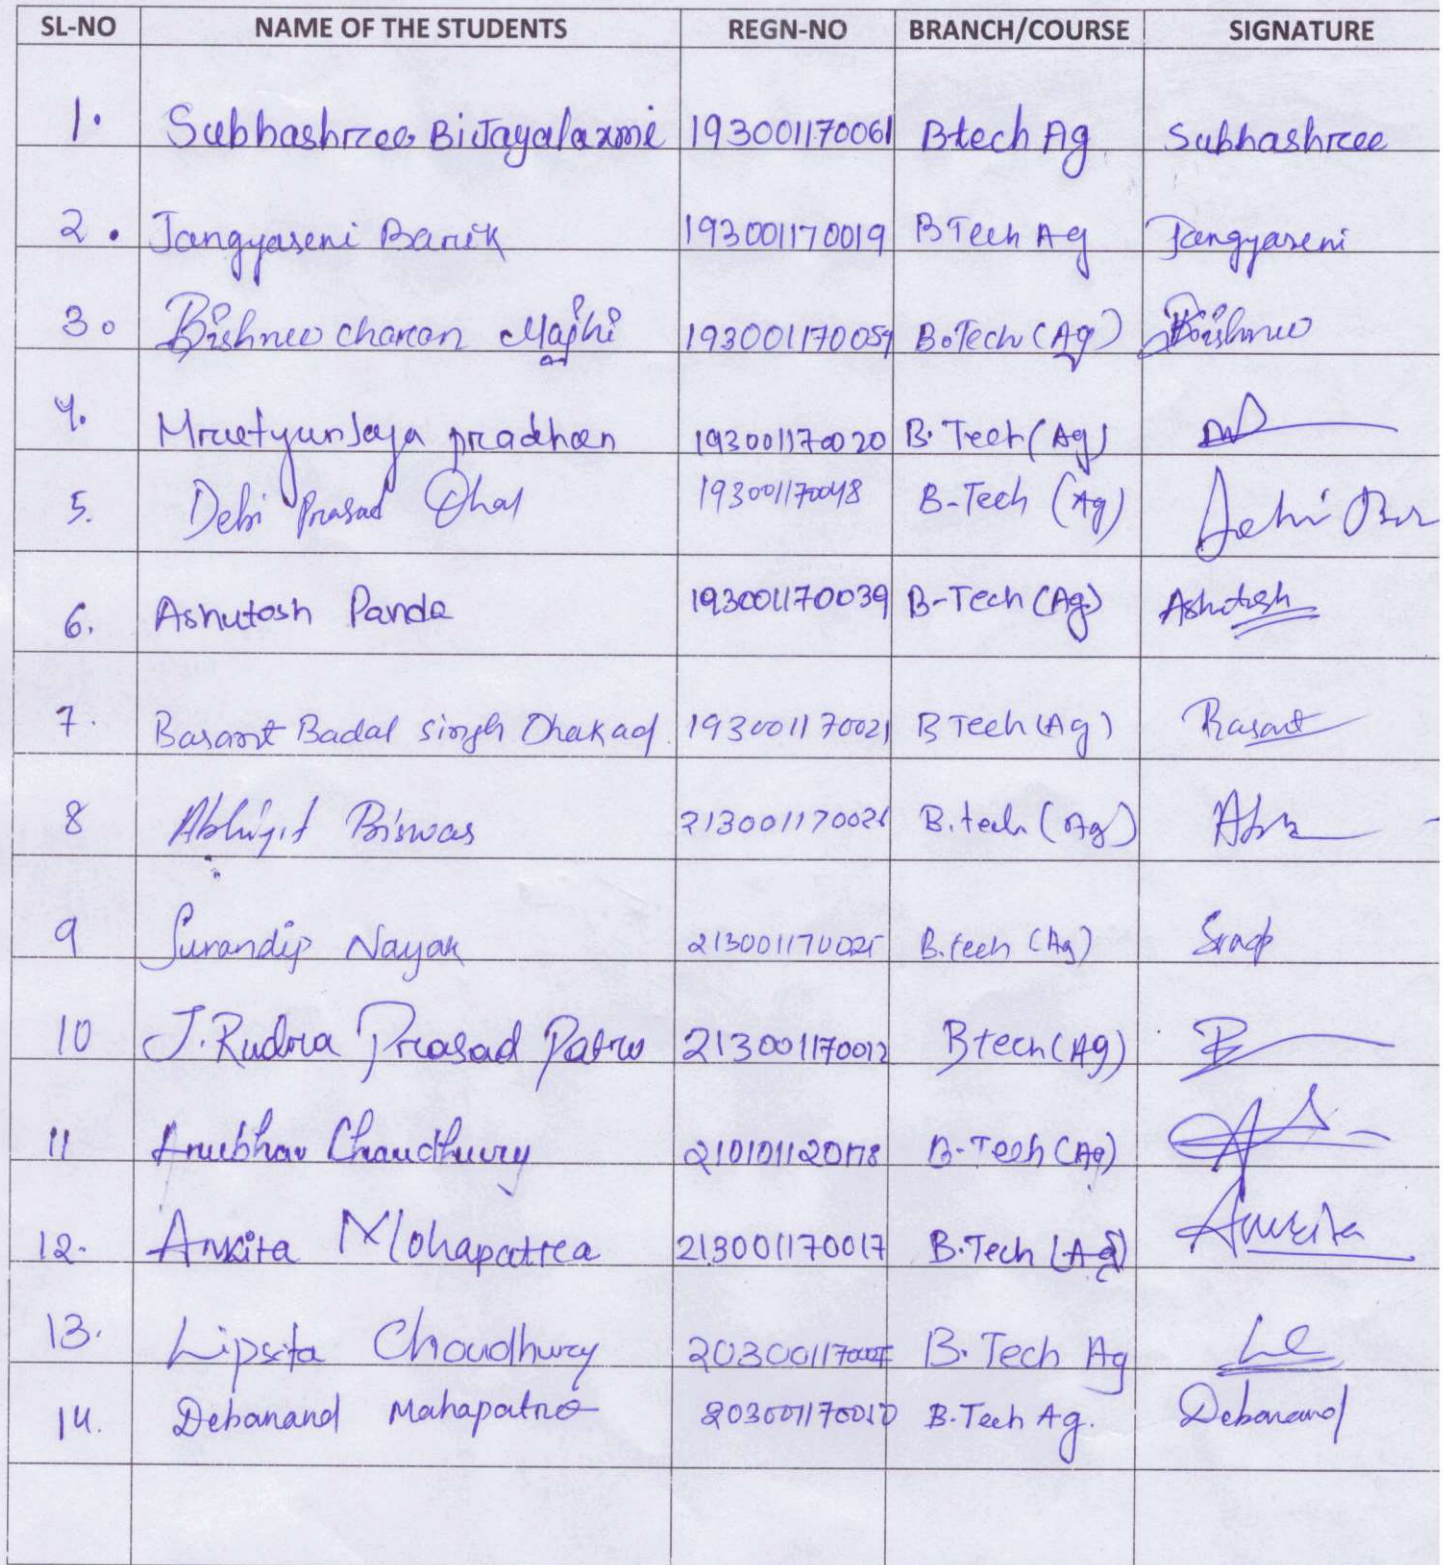 SL-NO NAME OF THE STUDENTS REGN-NO BRANCH/COURSE SIGNATURE
1. Subhashree Bijayalaxmi 193001170061 Btech Ag Subhashree
2. Jangyaseni Barik 193001170019 BTech Ag Jangyaseni
3. Bishnu charan Majhi 193001170059 B.Tech (Ag) Bishnu
4. Mrutyunjaya pradhan 193001170020 B.Tech (Ag)
5. Debi Prasad Dhal 193001170048 B-Tech (Ag)
6. Ashutosh Panda 193001170039 B-Tech (Ag) Ashutosh
7. Basant Badal singh Dhakad 193001170021 B Tech (Ag) Basant
8 Abhijit Biswas B.tech (Ag)
9 Surandip Nayak B.tech (Ag)
10 J. Rudra Prasad Patro 213001170012 Btech (Ag)
11 Anubhav Chaudhury 210101120178 B-Tech (Ag)
12. Ankita Mohapatra 213001170017 B.Tech (Ag) Ankita
13. Lipsita Choudhury B.Tech Ag
14. Debanand Mahapatra B.Tech Ag. Debanand